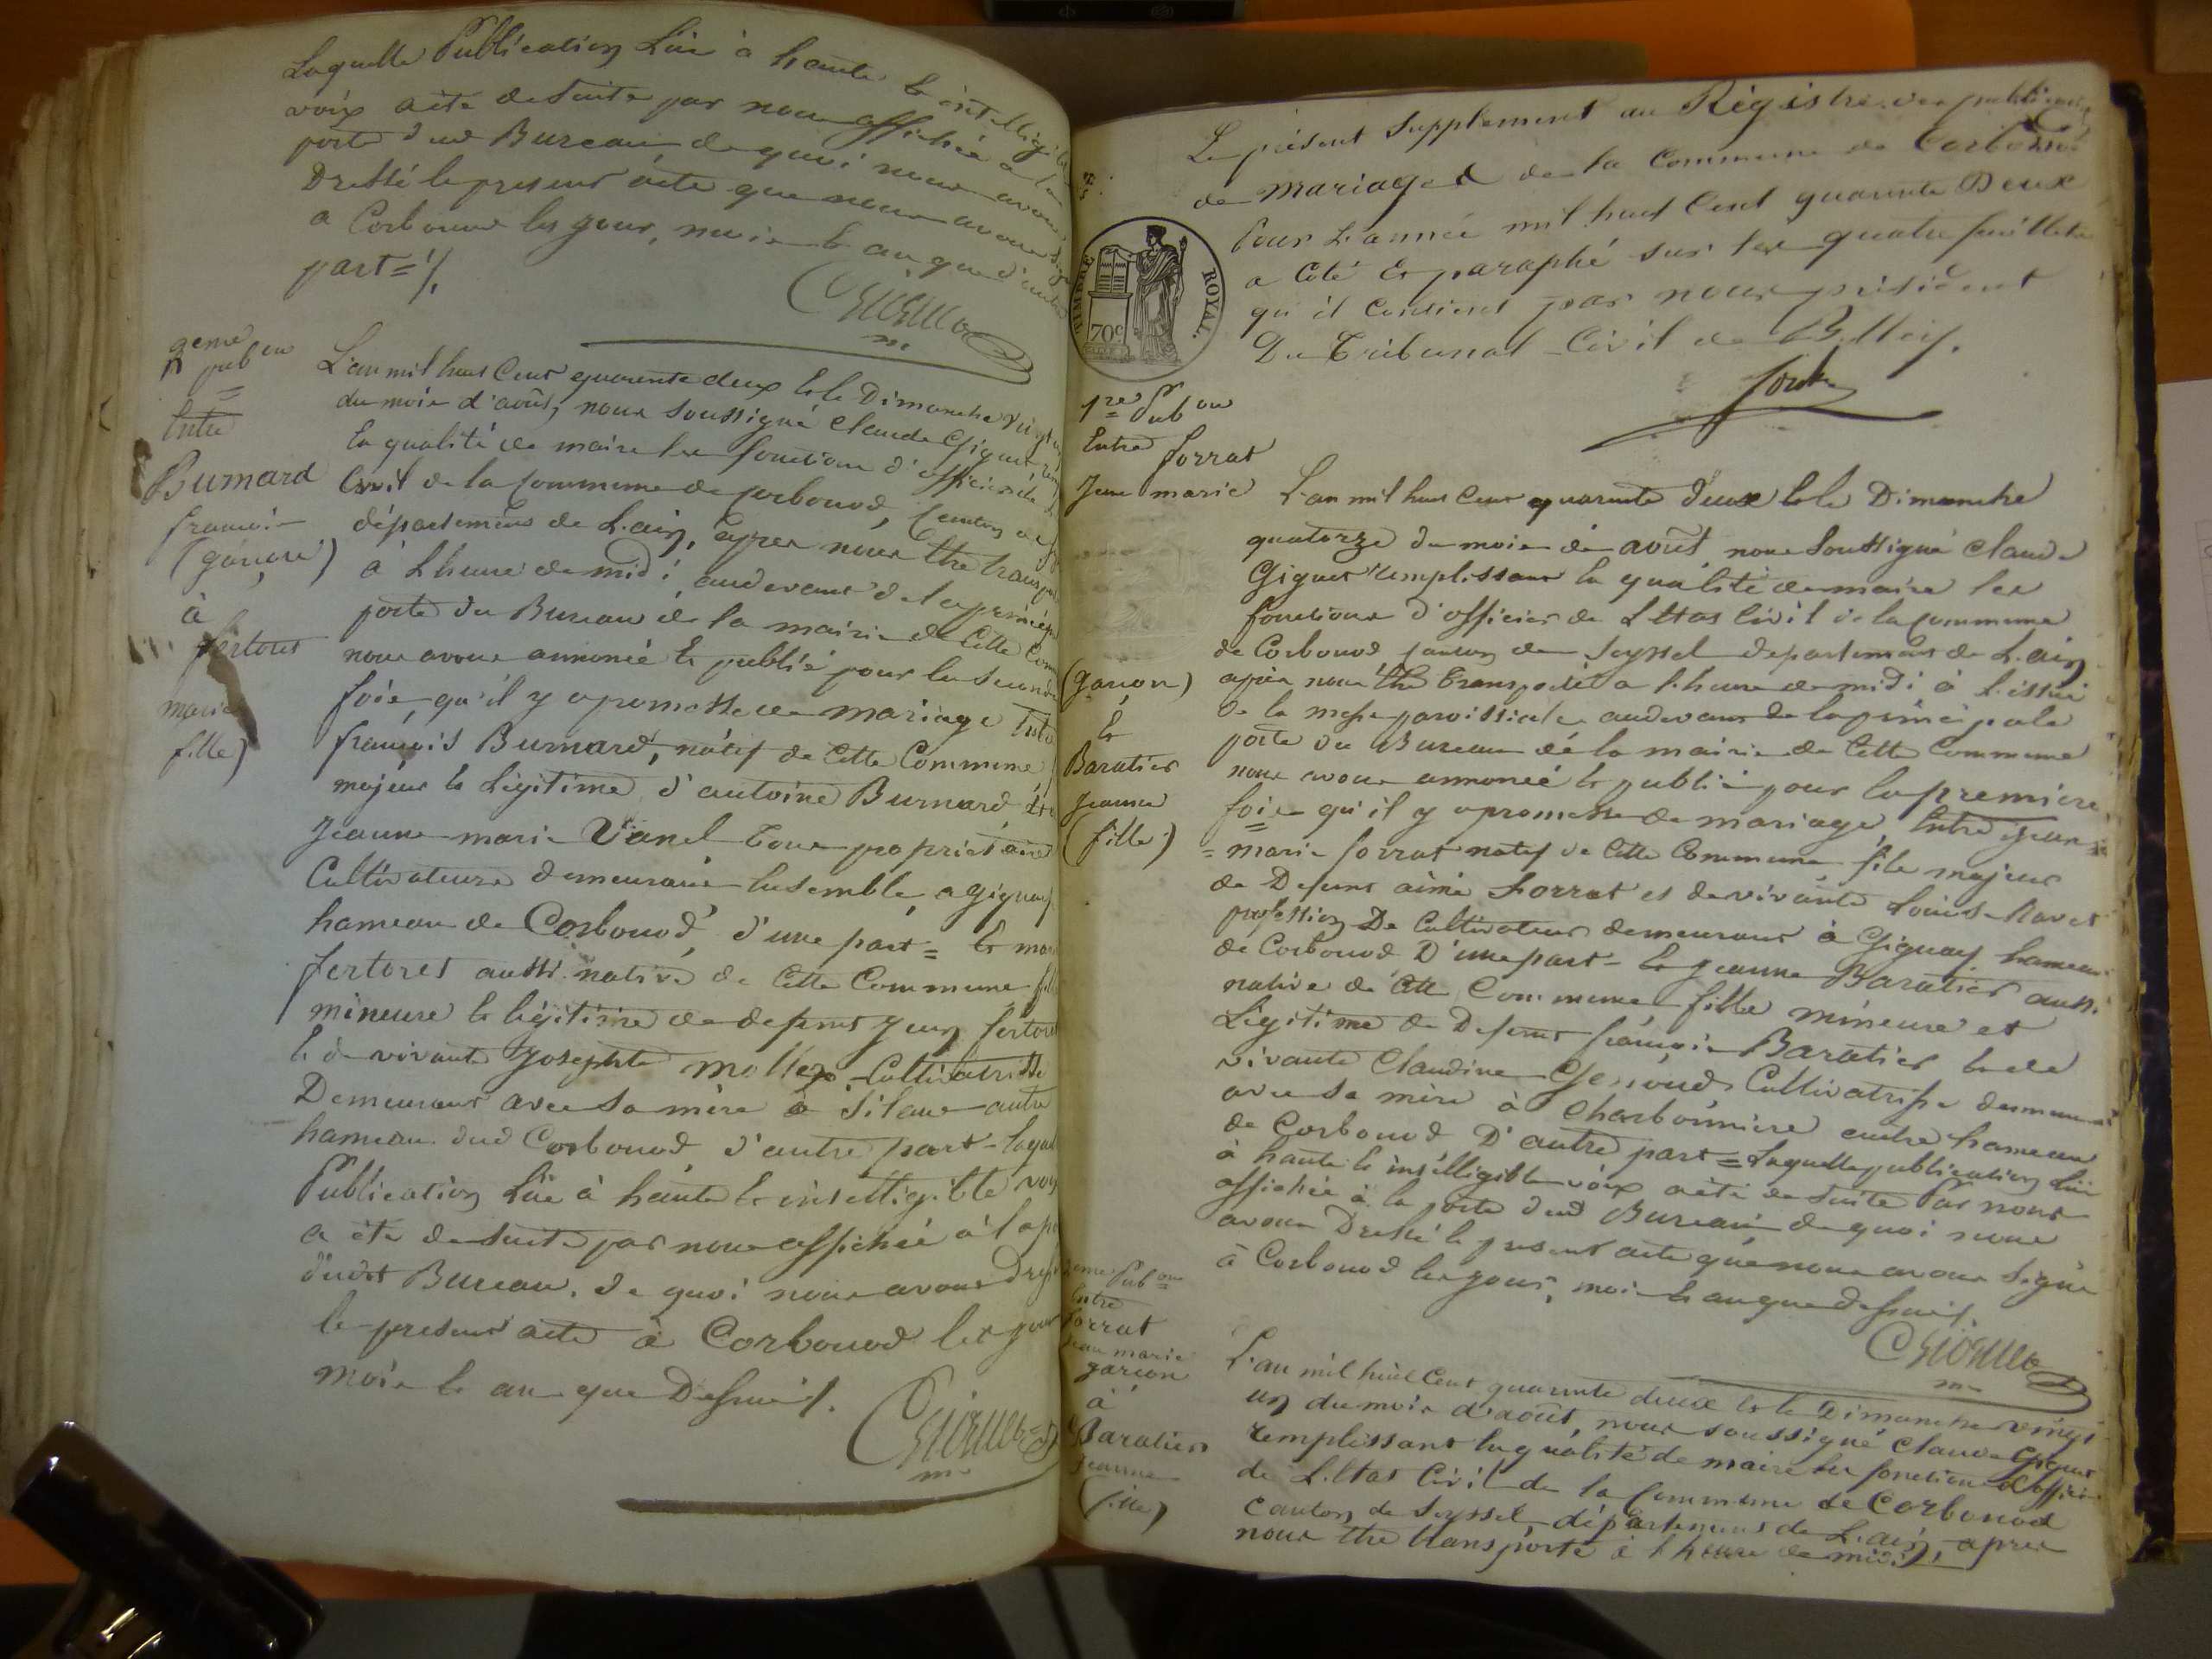 Laquelle Publication Lue à haute et intelligible
voix a été de suite par nous affichée à la
porte dud Bureau de quoi nous avons
Dressé le present acte que nous avons signé
a Corbonod les jour, mois et an que d'autre
part =
2eme
pub on
Entre
Burnard
francois
(garçon)
à
fertoret
marie
fille)
L'an mil huit Cent quarante deux et le Dimanche vingt un
du mois d'août, nous soussigné Claude Giguet
la qualité de maire les fonctions d'officier de
Civil de la Commune de Corbonod, Canton de
département de L'ain, après nous être transporté
à L'heure de midi, au devant de la principale
porte du Bureau de la mairie de Cette
nous avons annoncé et publié pour la seconde
fois, qu'il y a promesse de mariage Entre
françois Burnard, natif de Cette Commune
majeur et Légitime d'antoine Burnard, et
Jeanne marie Vanel tous propriétaires
Cultivateurs demeurant Ensemble a gignay
hameau de Corbonod, d'une part = Et marie
fertoret aussi native de Cette Commune fille
mineure et légitime de defunt Jean fertoret
Et de vivante Josephte mollex Cultivatrisse
Demeurant avec sa mère à Silans autre
hameau dud Corbonod d'autre part - laquelle
Publication Lüe à haute et intelligible voix
a été de suite par nous affichée à la porte
dudit Bureau, de quoi nous avons Dressé
le present acte à Corbonod les jour
mois et an que Dessus /.
Le présent Supplement au Régistre des publications
de mariages de la Commune de Corbonod
Pour L'année mil huit Cent quarante Deux
a été Coté et paraphé sur les quatre feuillets
qu'il Contient par nous président
Du Tribunal Civil de Belley.
TIMBRE ROYAL
70c
1re Pub on
Entre forrat
Jean marie
(garçon)
Et
Baratier
Jeanne
(fille)
L'an mil huit Cent quarante Deux et le Dimanche
quatorze du mois de août nous soussigné Claude
Giguet remplissant la qualité de maire les
fonctions d'officier de L'Etat Civil de la Commune
de Corbonod Canton de Seyssel departement de L'ain
après nous être transporté a l'heure de midi à l'issue
de la messe paroissiale au devant de la principale
porte du Bureau de la mairie de Cette Commune
nous avons annoncé et publié pour la premiere
fois qu'il y a promesse de mariage, Entre jean
= marie forrat natif de Cette Commune, fils majeur
de Defunt aimé Forrat et de vivante Louise Ravet
profession De Cultivateur demeurant à Gignay hameau
de Corbonod D'une part - Et Jeanne Baratier aussi
native de Cette Commune fille mineure et
Légitime de Defunt françois Baratier et de
vivante Claudine Genoud Cultivatrisse demeurant
avec sa mère à Charbonnière autre hameau
de Corbonod D'autre part = Laquelle publication lüe
à haute et intelligible voix a été de suite Par nous
affichée à la porte dud Bureau de quoi nous
avons Dressé le present acte que nous avons signé
à Corbonod les jour, mois et an que dessus /.
2eme Pub on
Entre
forrat
Jean marie
garçon
à
Baratier
Jeanne
(fille)
L'an mil huit Cent quarante deux et le Dimanche vingt
un du mois d'août, nous soussigné Claude Giguet
remplissant la qualité de maire les fonctions d'officier
de L'Etat Civil de la Commune de Corbonod
Canton de Seyssel, département de L'ain, après
nous être transporté à l'heure de midi,